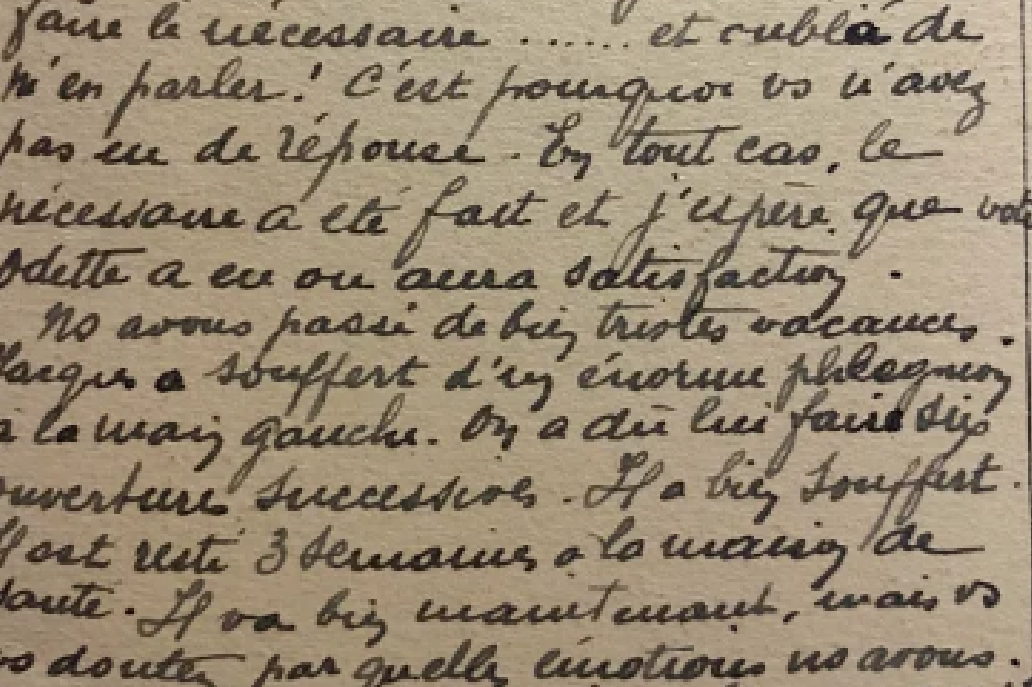 faire le nécessaire ...... et oublia de
m'en parler! C'est pourquoi vs n'avez
pas eu de réponse. En tout cas, le
nécessaire a été fait et j'espère que
Odette a eu ou aura satisfaction.
Ns avons passé de bien tristes vacances.
a souffert d'un énorme phlegmon
à la main gauche. On a dû lui faire six
ouvertures successives. Il a bien souffert.
Il est resté 3 semaines à la maison de
santé. Il va bien maintenant, mais vs
vs doutez par quelles émotions ns avons